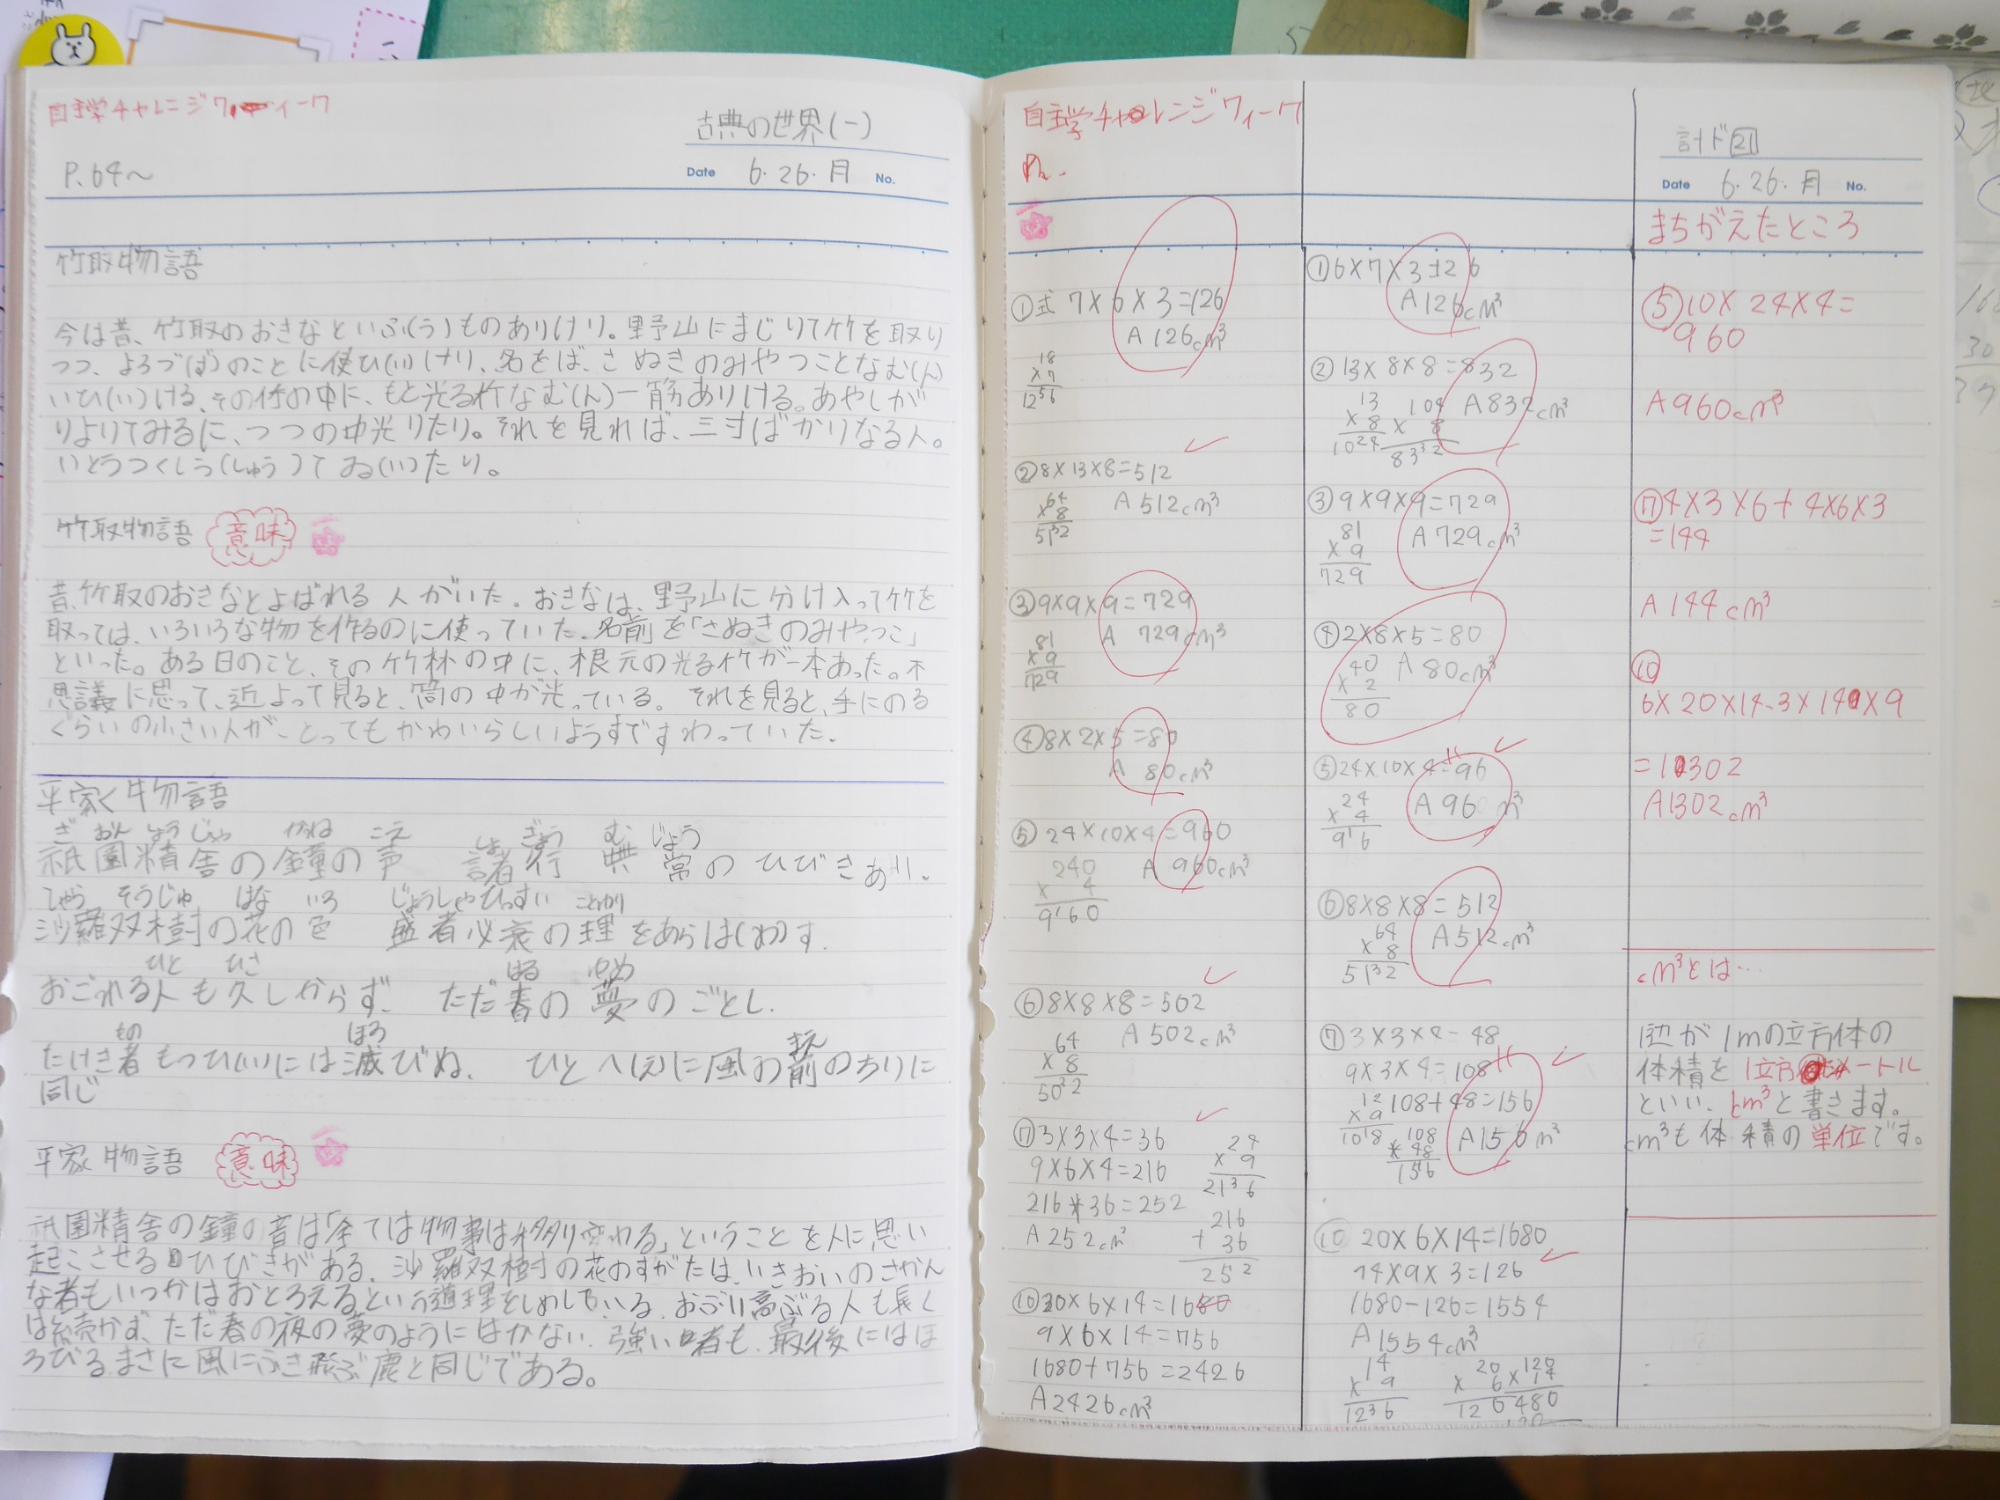 自主学チャレンジウィーク
古典の世界(一)
P.64～
Date 6.26.月 No.
竹取物語
今は昔、竹取のおきなといふ(う)ものありけり。野山にまじりて竹を取り
つつ、よろづ(ず)のことに使ひ(い)けり、名をば、さぬきのみやつことなむ(ん)
いひ(い)ける、その竹の中に、もと光る竹なむ(ん)一筋ありける。あやしが
りよりてみるに、つつの中光りたり。それを見れば、三寸ばかりなる人。
いとうつくしう(しゅう)てゐ(い)たり。
竹取物語 意味
昔、竹取のおきなとよばれる人がいた。おきなは、野山に分け入って竹を
取っては、いろいろな物を作るのに使っていた。名前を「さぬきのみやつこ」
といった。ある日のこと、その竹林の中に、根元の光る竹が一本あった。不
思議に思って、近よって見ると、筒の中が光っている。それを見ると、手にのる
ぐらいの小さい人が、とってもかわいらしいようすですわっていた。
平家く物語
ぎ おん しょうじゃ かね こえ しょ ぎょう む じょう
祇園精舎の鐘の声 諸行 無 常のひびきあり。
しゃら そうじゅ はな いろ じょうしゃひっすい ことわり
沙羅双樹の花の色 盛者必衰の理をあらは(わ)す.
ひと ひさ はる ゆめ
おごれる人も久しからず、ただ春の夢のごとし.
もの ほろ まえ
たけき者もつひ(い)には滅びぬ、ひとへ(え)に風の前のちりに
同じ
平家物語 意味
祇園精舎の鐘の音は「全ては物事は移り変わる」ということを人に思い
起こさせるひびきがある。沙羅双樹の花のすがたは、いきおいのさかん
な者もいつかはおとろえるという道理をしめしている。おごい高ぶる人も長く
は続かず、ただ春の夜の夢のようにはかない。強い者も、最後にはほ
ろびる、まさに風にふき飛ぶ鹿と同じである。
自主学チャレンジウィーク
計ド21
Date 6.26.月 No.
まちがえたところ
①式 7×6×3=126
A 126cm³
18
×7
1256
②8×13×8=512
64
×8
5132
A 512cm³
③9×9×9=729
81
×9
729
A 729cm³
④8×2×5=80
A 80cm³
⑤24×10×4=960
240
× 4
9160
A 960cm³
⑥8×8×8=502
A502cm³
64
×8
5032
⑦3×3×4=36
9×6×4=216
216+36=252
A252cm³
24
× 9
2136
216
+ 36
252
⑩20×6×14=1680
9×6×14=756
1680+756=2426
A2426cm³
①6×7×3=126
A126cm³
②13×8×8=832
13
×8
1024
104
× 8
8332
A832cm³
③9×9×9=729
81
×9
729
A729cm³
④2×8×5=80
40
× 2
80
A80cm³
⑤24×10×4=96
24
× 4
916
A96 m³
⑥8×8×8=512
64
×8
5132
A512cm³
⑦3×3×4=48
9×3×4=108
108+48=156
12
×9
1018
108
48
156
A156m³
⑩20×6×14=1680
14×9×3=126
1680-126=1554
A1554cm³
14
× 9
1236
20
× 6
120
120
×14
480
⑤10×24×4=
960
A960cm³
⑦4×3×6+4×6×3
=144
A144cm³
⑩
6×20×14-3×14×9
=1302
A1302cm³
cm³とは…
1辺が1mの立方体の
体積を1立方メートル
といい、m³と書きます。
cm³も体積の単位です。